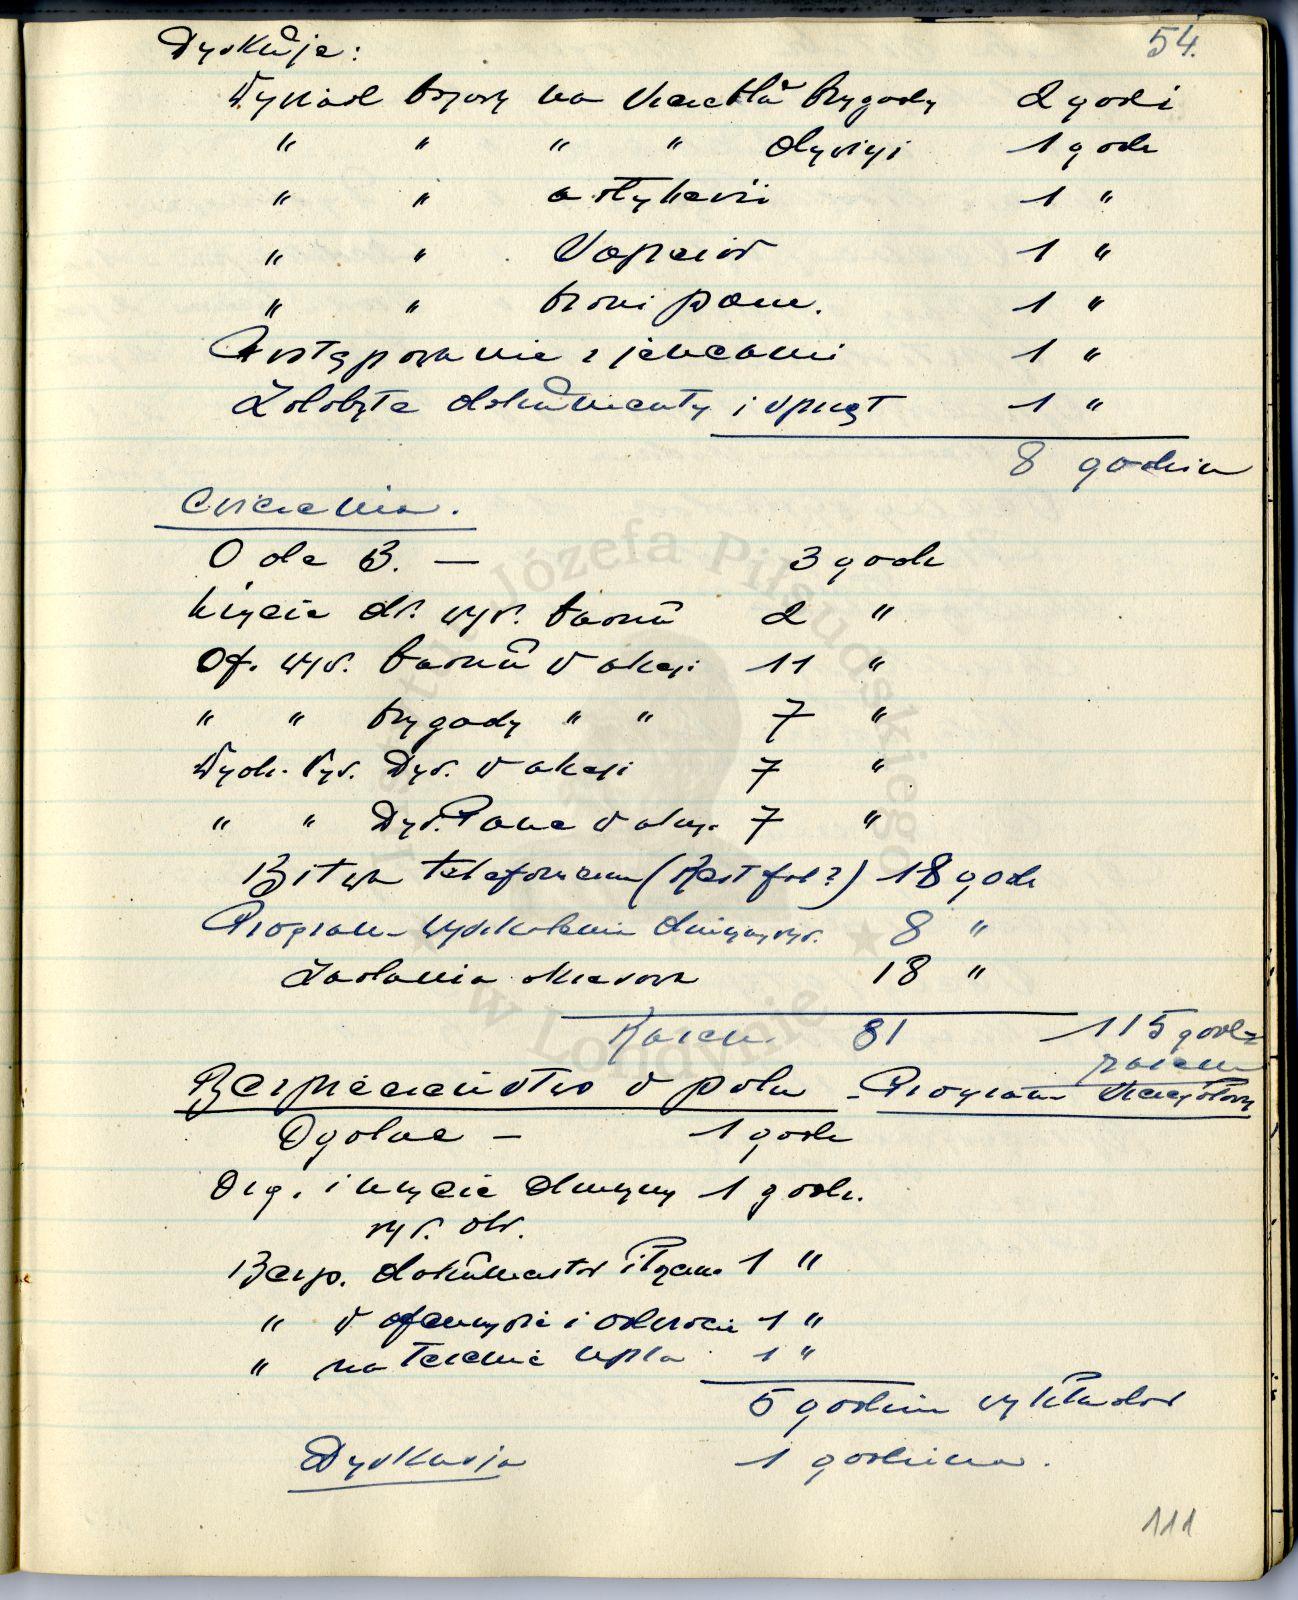 54.
Dyskusje:
Wywiad bojowy na szczeblu brygady 2 godz
" " " " dywizji 1 godz
" " artylerii 1 "
" " saperów 1 "
" " broni panc. 1 "
Postępowanie z jeńcami 1 "
Zdobyte dokumenty i sprzęt 1 "
8 godzin
Ćwiczenia.
O de B. — 3 godz
Użycie dr. wyw. baonu 2 "
Of. wyw. baonu w akcji 11 "
" " brygady " " 7 "
Wydz. Wyw. Dyw. w akcji 7 "
" " Dyw. Panc w akcji 7 "
Bitwa telefoniczna ( ) 18 godz
Program wyszkolenia drużyny wyw. 8 "
Zadania okresowe 18 "
Razem 81 115 godz
razem
Bezpieczeństwo w polu - Program szczegółowy
Ogólne — 1 godz
Org. i użycie drużyny 1 godz.
wyw. obr.
Bezp. dokumentów i tajem. 1 "
" w ofenzywie i odwrocie 1 "
" na terenie npla 1 "
5 godzin wykładów
Dyskusja 1 godzina.
111
Instytut Józefa Piłsudskiego
w Londynie